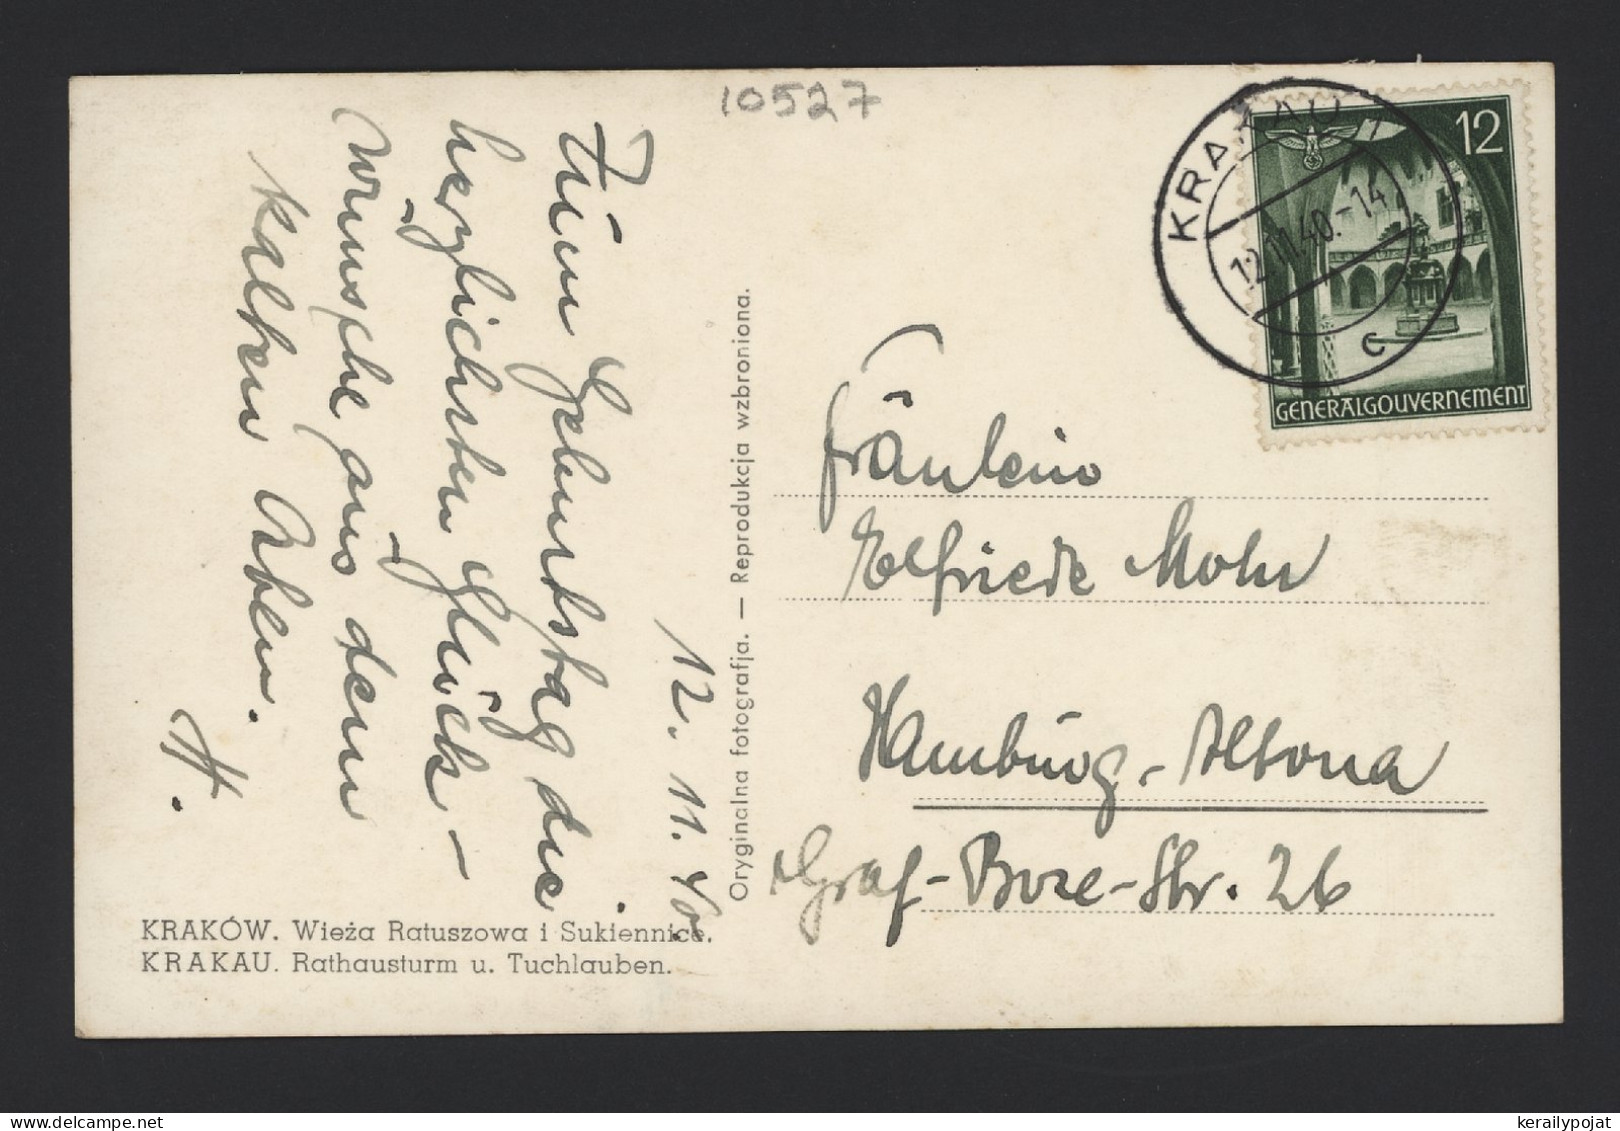 10527
KRAKAU 1
12.11.40.-14
c
12
GENERALGOUVERNEMENT
12. 11. 40.
Zum Geburtstag die
herzlichsten Glück-
wünsche aus dem
kalten Osten.
H.
Oryginalna fotografja. — Reprodukcja wzbroniona.
Fräulein
Elfriede Mohr
Hamburg-Altona
Graf-Bose-Str. 26
KRAKÓW. Wieża Ratuszowa i Sukiennice.
KRAKAU. Rathausturm u. Tuchlauben.
kerailypojat